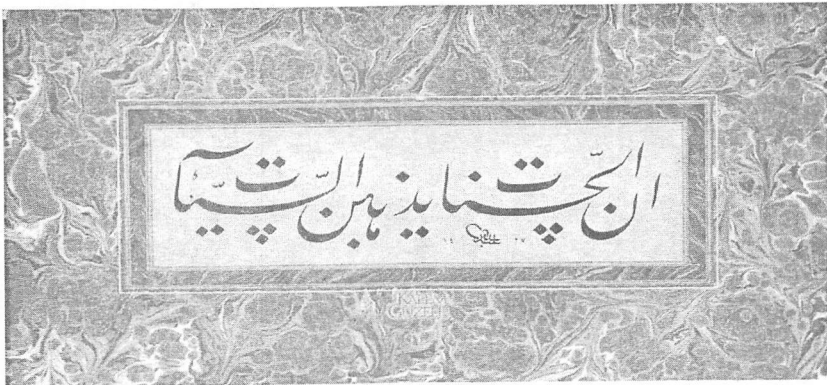 ان الحسنات يذهبن السيّئات
١٤ ٢٧
KALEM
GÜZELİ